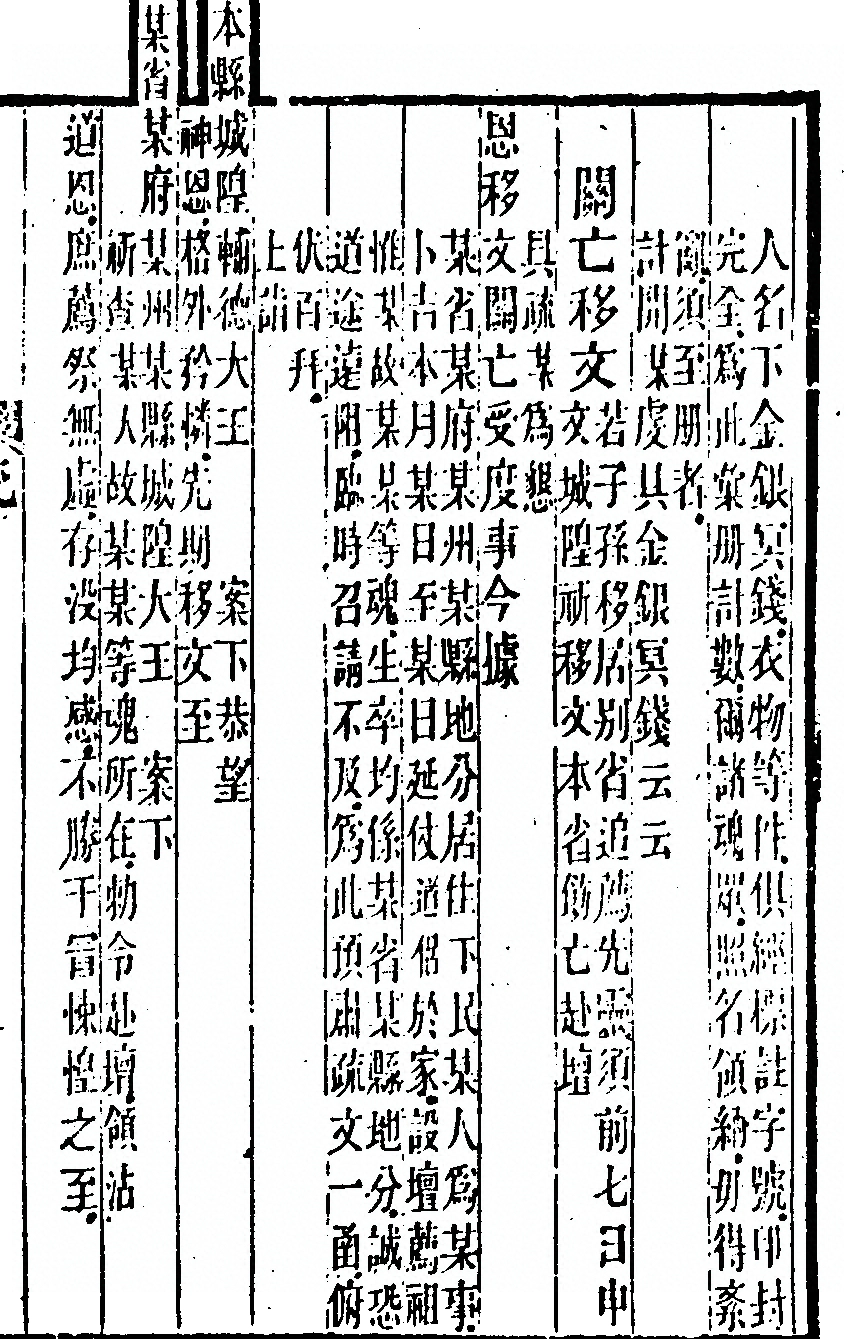 人名下金銀冥錢。衣物等件。俱經標註字號。印封
完全。為此彙册計數。爾諸魂眾。照名領納。毋得紊
亂。須至册者。
計開某處具金銀冥錢云云
關亡移文
若子孫移居別省追薦先靈須前七日申
文城隍祈移文本省飭亡赴壇
具疏某為懇
恩移文關亡受度事今據
某省某府某州某縣地分居住下民某人為某事。
卜吉本月某日至某日延仗道侶於家。設壇薦祖
惟某故某某等魂。生卒均係某省某縣地分。誠恐
道途遠阻。臨時召請不及。為此預肅疏文一函。俯
伏百拜。
上請
本縣城隍輔德大王 案下恭望
神恩。格外矜憐。先期移文至
某省某府某州某縣城隍大王 案下
祈查某人故某某等魂所在。勅令赴壇。領沾
道恩。庶薦祭無虛。存没均感。不勝干冒悚惶之至。